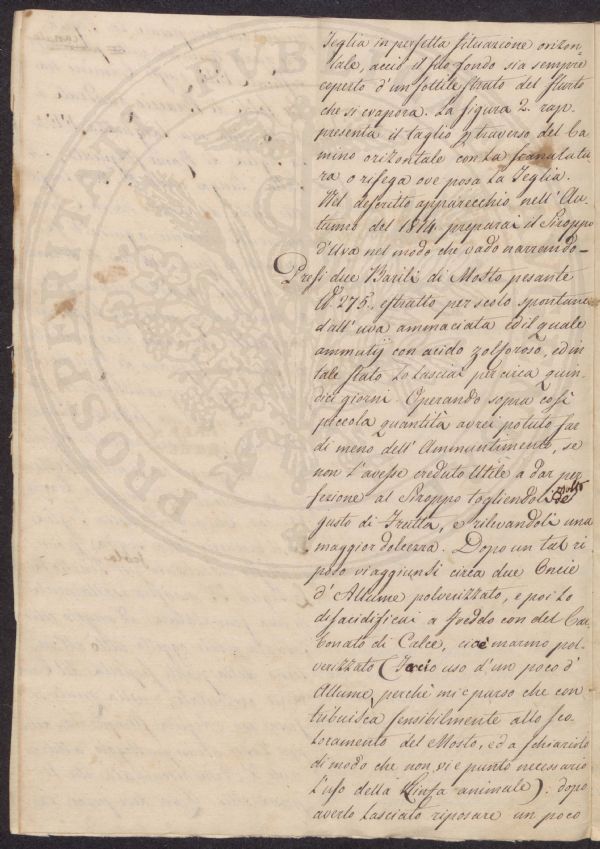 Teglia in perfetta situazione orizon=
tale, acciò il suo fondo sia sempre
coperto d'un sottile strato del fluido
che si evapora. La figura 2. rap-
presenta il taglio traverso del Ca
mino orizontale con la scanalatu-
ra o risega ove posa la Teglia.
Nel descritto apparecchio nell'Au-
tunno del 1814 preparai il Siroppo
d'Uva nel modo che vado narrando_
Presi due Barili di Mosto pesante
275, estratto per scolo spontaneo
dall'uva ammaciata ed il quale
ammutij con acido zolforoso, ed in
tale stato lo lasciai per circa quin-
dici giorni. Operando sopra così
piccola quantità avrei potuto far
di meno dell'Ammuntimento, se
non l'avesse creduto utile a dar per
fezione al Siroppo togliendoli molto de
gusto di Frutta, e rilevandoli una
maggior dolcezza. Dopo un tal ri
poso vi aggiunsi circa due Oncie
d'Allume polverizzato, e poi lo
disacidificai a freddo con del Car
bonato di Calce, cioè marmo pol-
verizzato (Faccio uso d'un poco d'
Allume perchè mi è parso che con
tribuisca sensibilmente allo sco-
loramento del Mosto, ed a schiarirlo
di modo che non vi è punto necessario
l'uso della animale): dopo
averlo lasciato riposare un poco
PRO PERITIA PUB